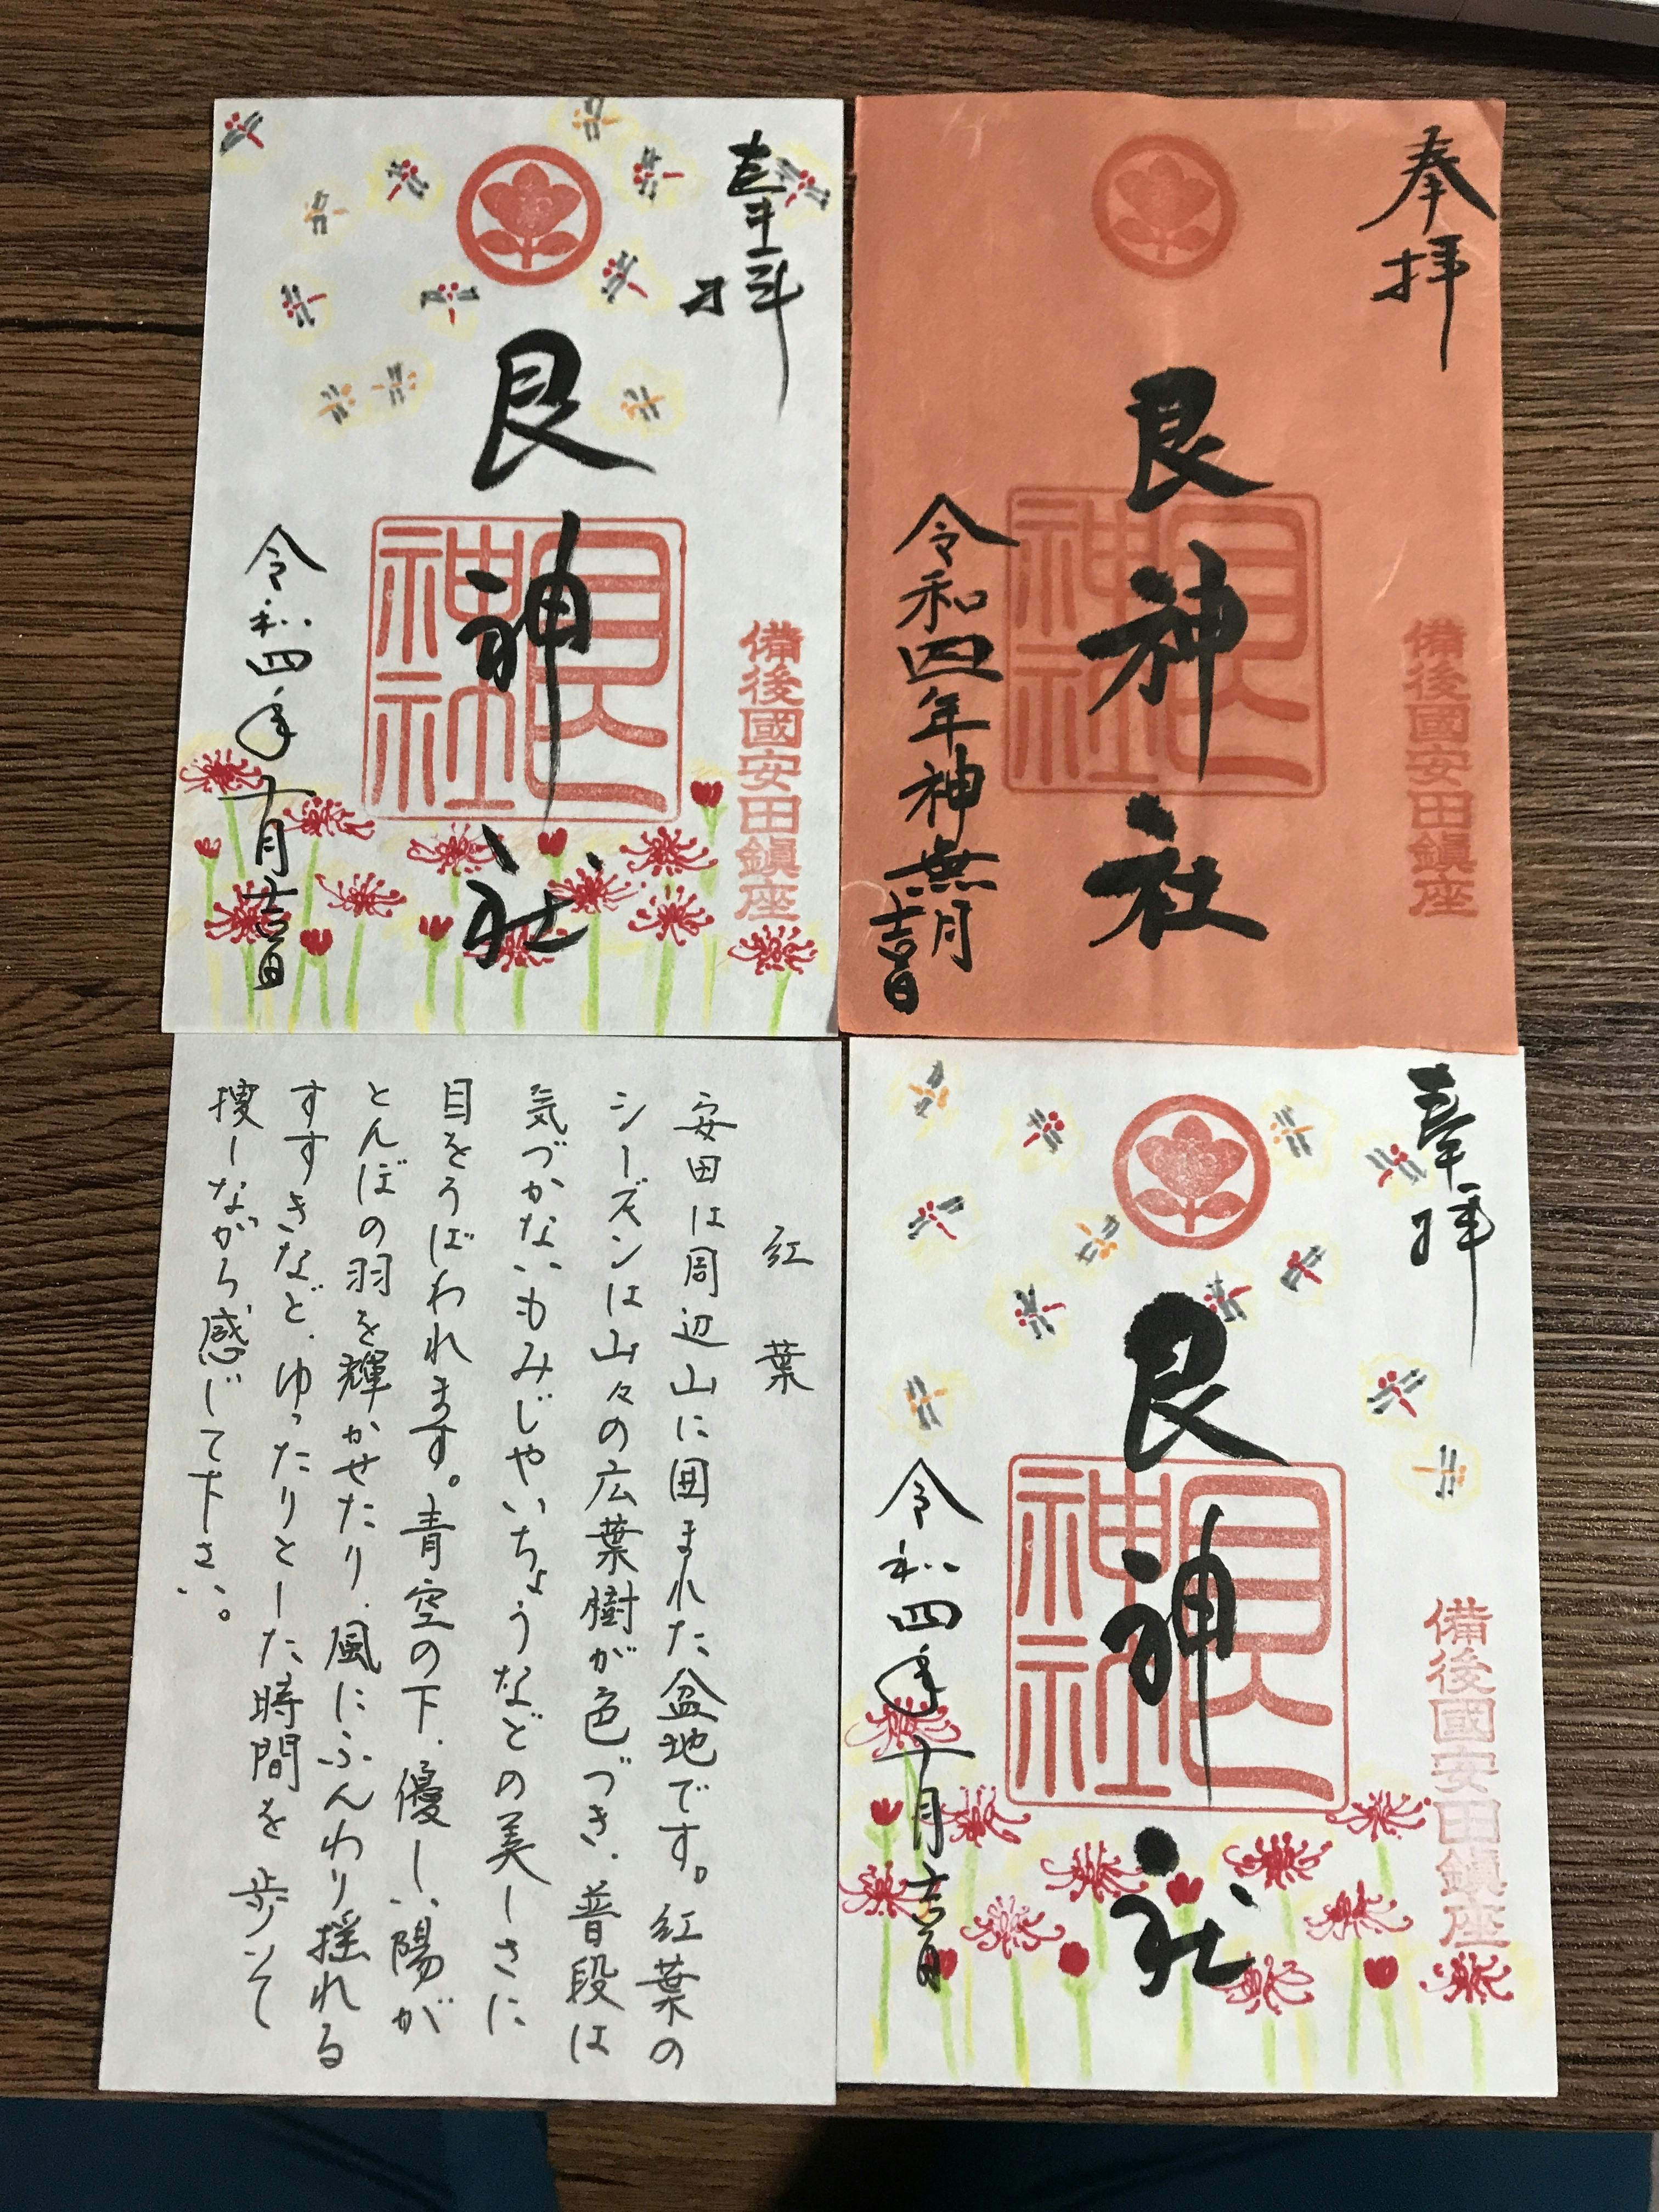 奉拝
艮神社
艮神社
備後國安田鎮座
令和四年十月吉日
奉拝
艮神社
艮神社
備後國安田鎮座
令和四年神無月
吉日
紅葉
安田は周辺山に囲まれた盆地です。紅葉の
シーズンは山々の広葉樹が色づき、普段は
気づかないもみじやいちょうなどの美しさに
目をうばわれます。青空の下、優しい陽が
とんぼの羽を輝かせたり、風にふんわり揺れる
すすきなど、ゆったりとした時間を歩いて
捜しながら感じて下さい。
奉拝
艮神社
艮神社
備後國安田鎮座
令和四年十月吉日